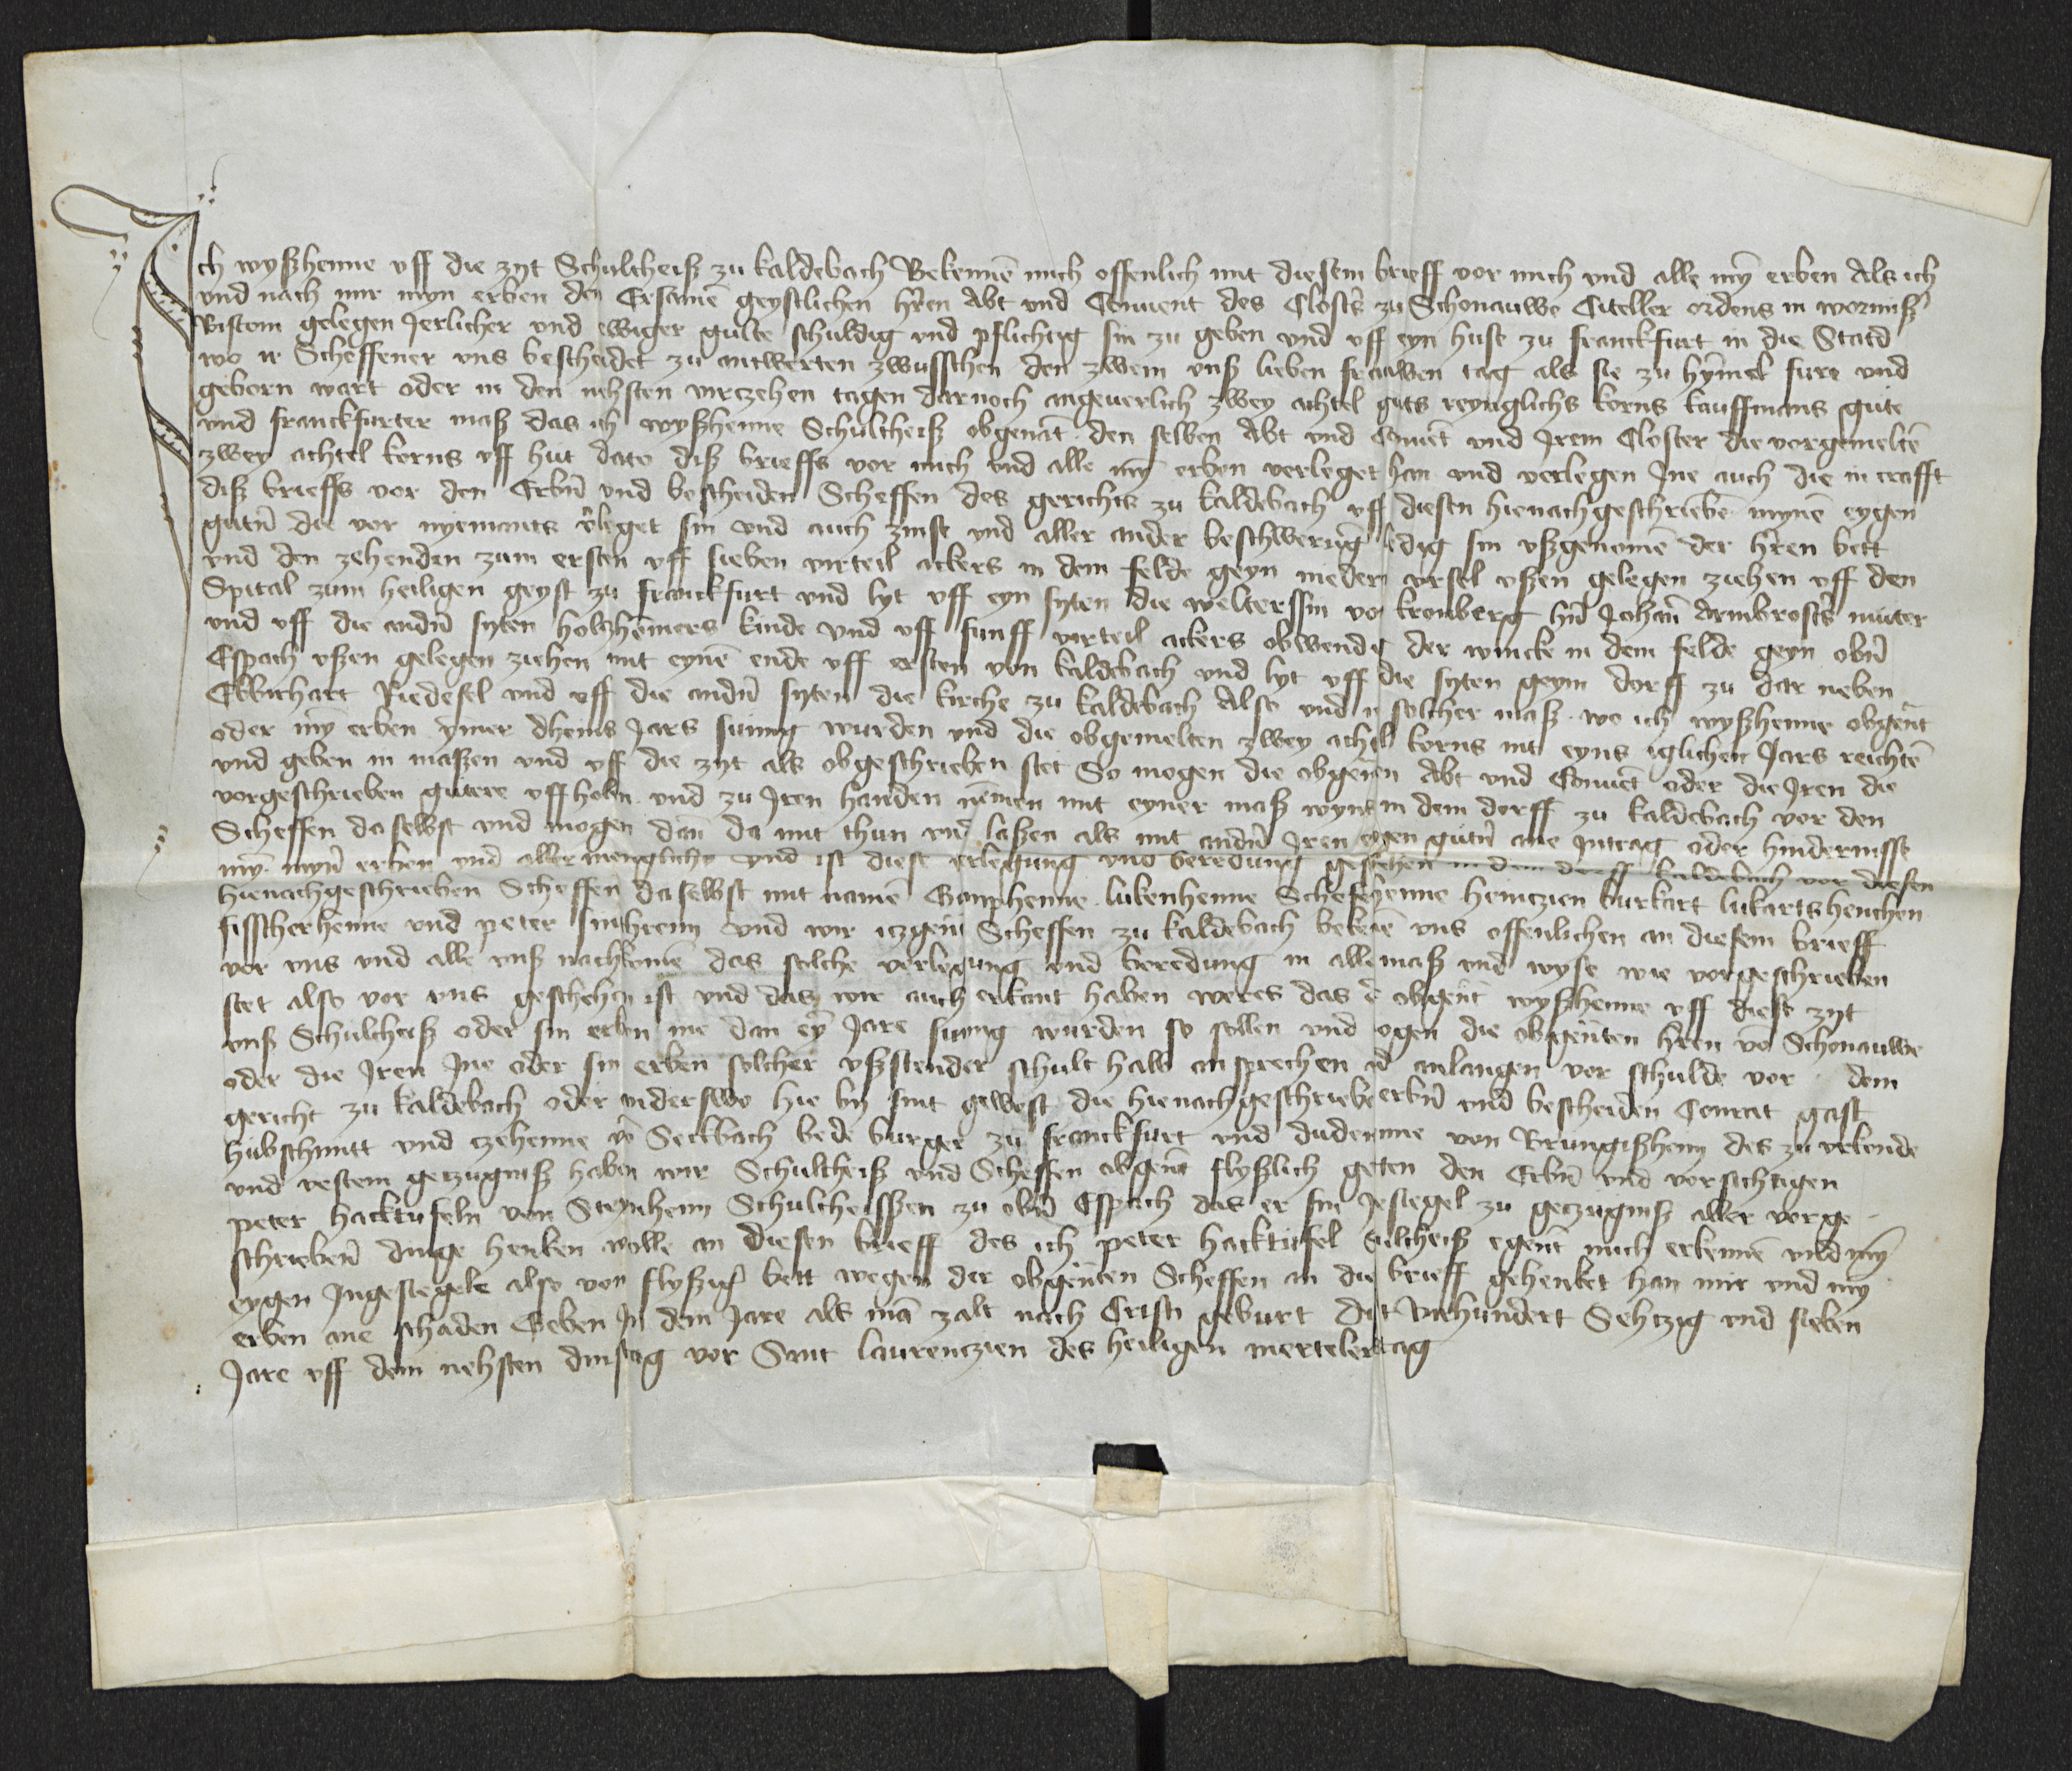 Ich wyßhenne vff die zyt Schultheiß zu kaldebach Bekennē mich offenlich mit diesem brieff vor mich vnd alle myn̄ erben Als ich
vnd nach mir myn erben den Ersamē geystlichen hr̄en Abt vnd Conuent des Closters zu Schonauwe Citeller ordens in wormiß
Bistom gelegen Jerlicher vnd ewiger gulte schuldig vnd pflichtig sin zu geben vnd vff eyn huse zu franckfurt in die Statd
wo ir Scheffener vns bescheidet zu antwerten zwusschen den zwein vnß lieben frauwen tag als sie zu hȳmel fure vnd
geborn wart oder in den nehsten virczehen tagen darnoch angeuerlich zwey achtel guts reynglichs korns kauffmans gute
vnd franckfurter maß das ich wyßhenne Schultheiß obgenāt den selben Abt vnd Conuēt vnd Jrem Closter die vorgemeltē
zwey achtel korns vff hut dato diß brieffs vor mich vnd alle myn̄ erben verleget han vnd verlegen Jne auch die in crafft
diß brieffs vor den Erbn̄ vnd bescheiden Scheffen des gerichts zu kaldebach vff diesen hienachgeschriebē mynē eygen
gutn̄ die vor nyemants v̄leget sin vnd auch zinse vnd aller ander beschwerūg ledig sin vßgenomē der hr̄en bett
vnd den zehenden zum ersten vff sieben virteil ackers in dem felde geyn nieder vrsel vßen gelegen ziehen vff den
Spital zum heiligen geyst zu franckfurt vnd lyt vff eyn syten die welterssin vo kronberg hn̄ Johan̄ Armbrosts muter
vnd vff die andn̄ syten holtzhēmers kinde vnd vff funff virteil ackers obwendig der wincke in dem felde geyn obn̄
Espach vßen gelegen ziehen mit eynē ende vff ersten von kaldebach vnd lyt vff die syten geyn dorff zu dar neben
Ekbrchart Riedesel vnd vff die andn̄ syten die kirche zu kaldebach Also vnd solcher maß wo ich wyßhenne obgen̄t
oder myn̄ erben ymer dheins Jars sumig wurden vnd die obgemelten zwey achtel korns nit eyns iglichen Jars reichtē
vnd geben in maßen vnd vff die zyt als obgeschrieben stet So mogen die obgen̄en Abt vnd Conuēt oder die Jren die
vorgeschrieben gutere vffholn vnd zu Jren handen nēmen mit eyner maß wyns in dem dorff zu kaldebach vor den
Scheffen daselbst vnd mogen dan̄ da mit thun vn̄ laßen als mit andn̄ Jren eygen gutn̄ ane Jntrag oder hindernisse
my̅ myn̄ erben vnd allermenglichs vnd ist diese v̄legung vnd beredung geschehen in dem dorff kaldebach vor diesen
hienachgeschrieben Scheffen daselbst mit namē henne lukenhenne Schefehenne heinczien burkart lukartshenchen
fisscherhenne vnd peter vnd wir itzgen̄ Scheffen zu kaldebach bekenē vns offenlichen an diesem brieff
vor vns vnd alle vnß nachkomē das solche verlegung vnd beredung in alle maß vnd wyse wie vorgeschrieben
stet also vor vns geschehen ist vnd das wir auch erkant haben weres das d̄ obgen̄t wyßhenne vff diese zyt
vnß Schultheiß oder sin erben me dan ey̅ Jare sumig wurden so sollen vnd ogen die obgen̄ten hr̄en vō Schonauwe
oder die Jren Jne oder sin erben solcher vßstender schult halb an sprechen vn̄ anlangen vor schulde vor dem
gericht zu kaldebach oder anderswo hie by sint gewest die hienachgeschriebē erbn̄ vnd bescheiden Conrat gast
hubschmitt vnd czehenne vō Seckbach bede burger zu franckfurt vnd dudenne von Brungißheim des zu vrkunde
vnd vestem geczugniß haben wir Schultheiß vnd Scheffen obgen̄t flyßlich geten den Erbn̄ vnd vorsichtigen
peter hacktufeln von Steynheim Schultheissen zu obn̄ Espach das er sin Jesiegel zu geczugniß aller vorge
schriebn̄ dinge henken wolle an diesen brieff des ich peter hacktufel Sulcheiß egen̄t mich erkennē vnd myn̄
eygen Jngesiegele also von flyßig bett wegen der obgen̄ten Scheffen an die brieff gehenket han mir vnd my
erben ane schaden Geben Jn dem Jare als mā zalt nach Cristi geburt virhundert Sehtzig vnd sieben
Jare vff dem nehsten dinstag vor Sant laurenczien des heiligen mertelers tag